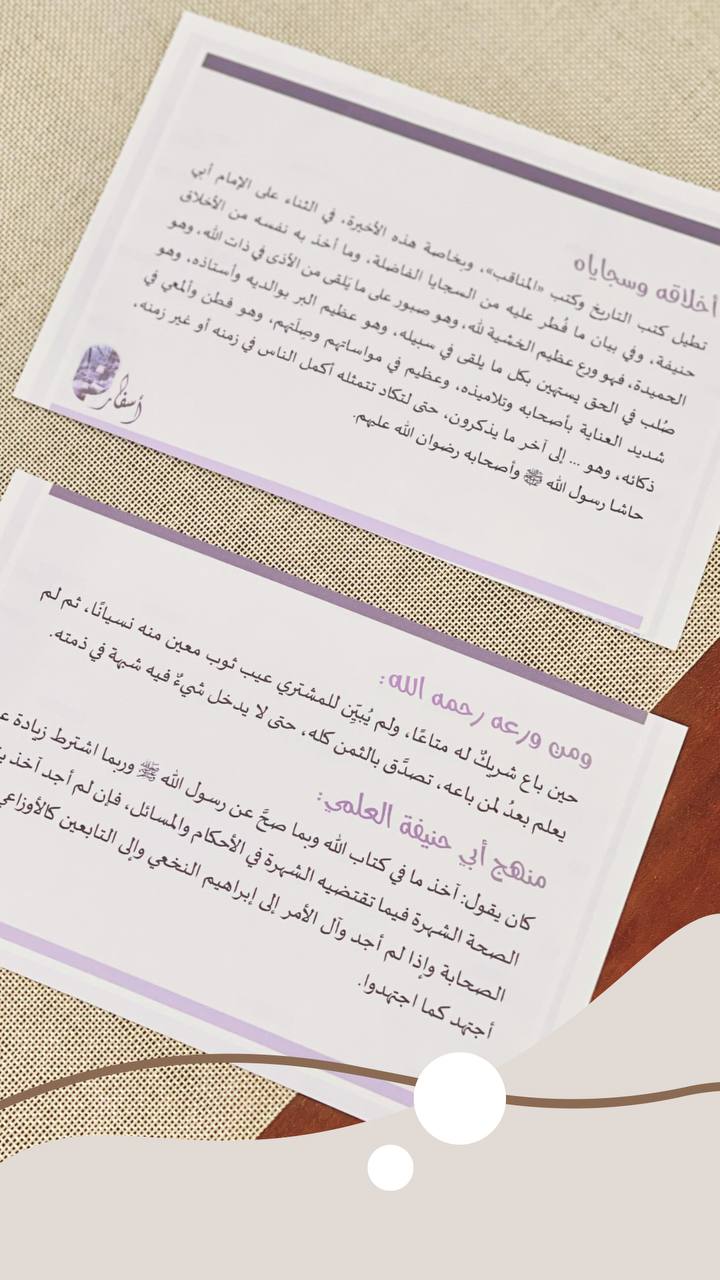 أخلاقه وسجاياه
تطيل كتب التاريخ وكتب «المناقب»، وبخاصة هذه الأخيرة، في الثناء على الإمام أبي
حنيفة، وفي بيان ما فُطر عليه من السجايا الفاضلة، وما أخذ به نفسه من الأخلاق
الحميدة، فهو ورع عظيم الخشية لله، وهو صبور على ما يَلقى من الأذى في ذات الله، وهو
صُلب في الحق يستهين بكل ما يلقى في سبيله، وهو عظيم البر بوالديه وأستاذه، وهو
شديد العناية بأصحابه وتلاميذه، وعظيم في مواساتهم وصِلَتهم، وهو فطن وألمعي في
ذكائه، وهو ... إلى آخر ما يذكرون، حتى لتكاد تتمثله أكمل الناس في زمنه أو غير زمنه،
حاشا رسول الله ﷺ وأصحابه رضوان الله عليهم.
أسفار
ومن ورعه رحمه الله:
حين باع شريكٌ له متاعًا، ولم يُبيِّن للمشتري عيب ثوب معين منه نسيانًا، ثم لم
يعلم بعدُ لمن باعه، تصدَّق بالثمن كله، حتى لا يدخل شيءٌ فيه شبهة في ذمته.
منهج أبي حنيفة العلمي:
كان يقول: آخذ ما في كتاب الله وبما صحَّ عن رسول الله ﷺ وربما اشترط زيادة
الصحة الشهرة فيما تقتضيه الشهرة في الأحكام والمسائل، فإن لم أجد آخذ
الصحابة وإذا لم أجد وآل الأمر إلى إبراهيم النخعي وإلى التابعين كالأوزاعي
أجتهد كما اجتهدوا.